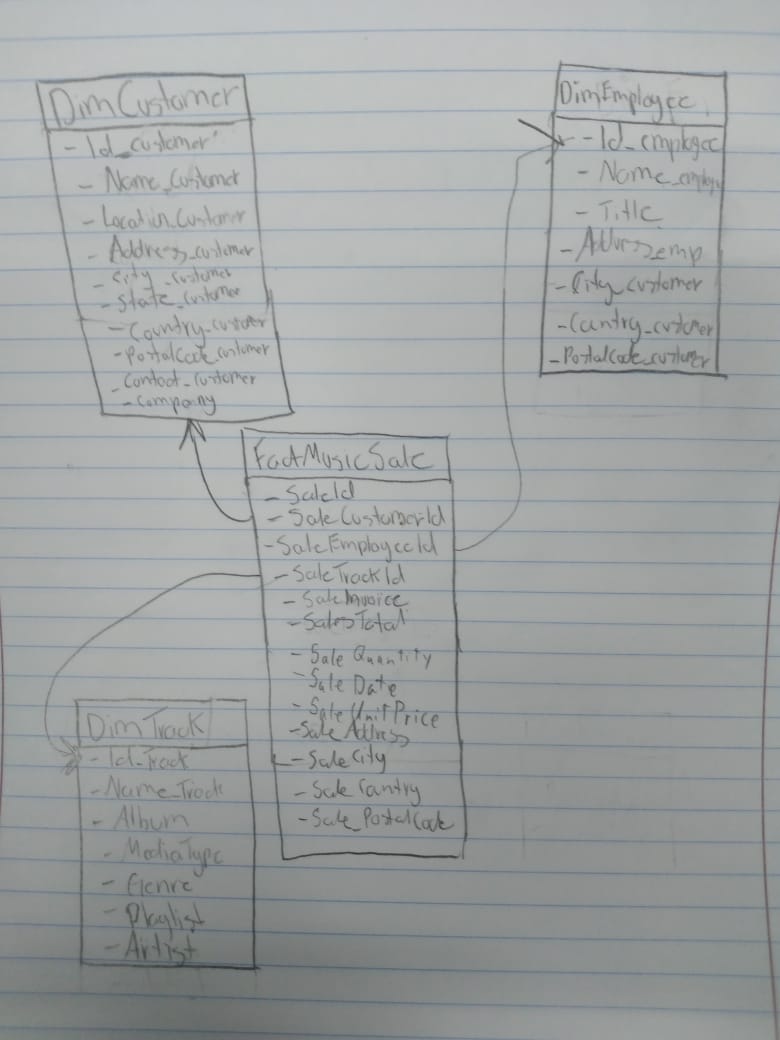 DimCustomer
- Id_customer
- Name_Customer
- Location_Customer
- Address_customer
- City_customer
- State_customer
- Country_customer
- PostalCode_customer
- Contact_customer
- Company
DimEmployee
- Id_employee
- Name_employe
- Title
- Address_emp
- City_customer
- Cantry_customer
- PostalCode_customer
FactMusicSale
- SaleId
- SaleCustomerId
- SaleEmployeeId
- SaleTrackId
- SaleInvoice
- SalesTotal
- Sale Quantity
- Sale Date
- Sale UnitPrice
- Sale Address
- Sale City
- Sale Cantry
- Sale_PostalCode
DimTrack
- Id_Track
- Name_Track
- Album
- MediaType
- Genre
- Playlist
- Artist